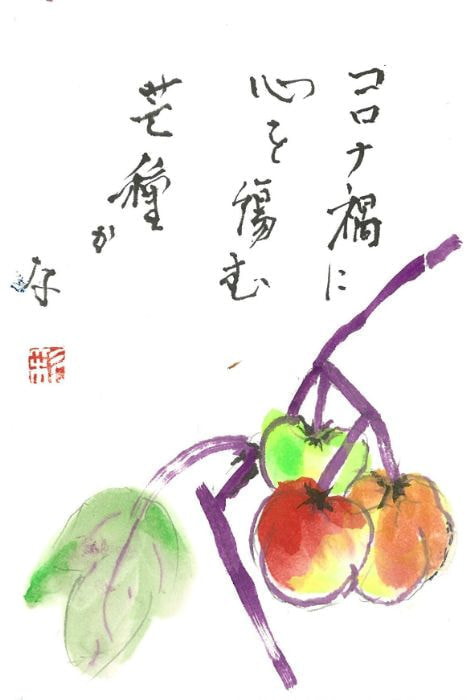 コロナ禍に
心を傷む
芒種かな
彩